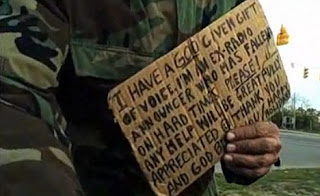 I HAVE A GOD GIVEN GIFT
OF VOICE. I'M AN EX-RADIO
ANNOUNCER WHO HAS FALLEN
ON HARD TIMES. PLEASE!
ANY HELP WILL BE GREATFULLY
APPRECIATED. THANK YOU
AND GOD